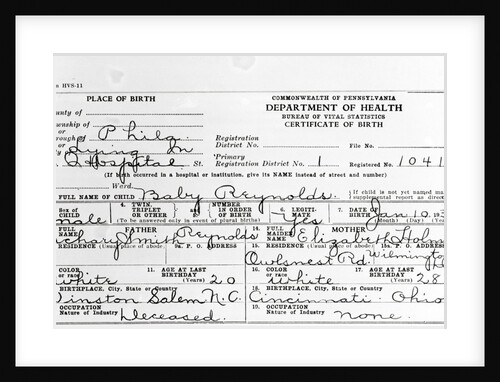 HVS-11
PLACE OF BIRTH
COMMONWEALTH OF PENNSYLVANIA
DEPARTMENT OF HEALTH
BUREAU OF VITAL STATISTICS
CERTIFICATE OF BIRTH
unty of
ownship of
or
rough of Phila.
or
Lying In
Hospital St.
Registration
District No. File No.
Primary
Registration District No. 1 Registered No. 1041
(If birth occurred in a hospital or institution, give its NAME instead of street and number)
Ward.
FULL NAME OF CHILD Baby Reynolds.
If child is not yet named ma
supplemental report as direct
Sex of
CHILD
male
4. TWIN,
TRIPLET
OR OTHER
5. NUMBER
IN ORDER
OF BIRTH
(To be answered only in event of plural births)
6. LEGITI-
MATE
Yes
7. DATE OF
BIRTH Jan 10. 193
(Month) (Day) (Yea
FULL
NAME
FATHER
achary Smith Reynolds
14. FULL
MAIDEN
NAME
MOTHER
Elizabeth Holm
RESIDENCE (Usual place of abode) P. O. ADDRESS
15. RESIDENCE (Usual place of abode) 15a. P. O. ADDRESS
Wilmington
Rd.
COLOR
or race
white
11. AGE AT LAST
BIRTHDAY
(Years) 20
16. COLOR
or race
White
17. AGE AT LAST
BIRTHDAY
(Years) 28
BIRTHPLACE, City, State or Country
inston Salem N.C.
18. BIRTHPLACE, City, State or Country
Cincinnati. Ohio
OCCUPATION
Nature of Industry
Deceased.
19. OCCUPATION
Nature of Industry
none.